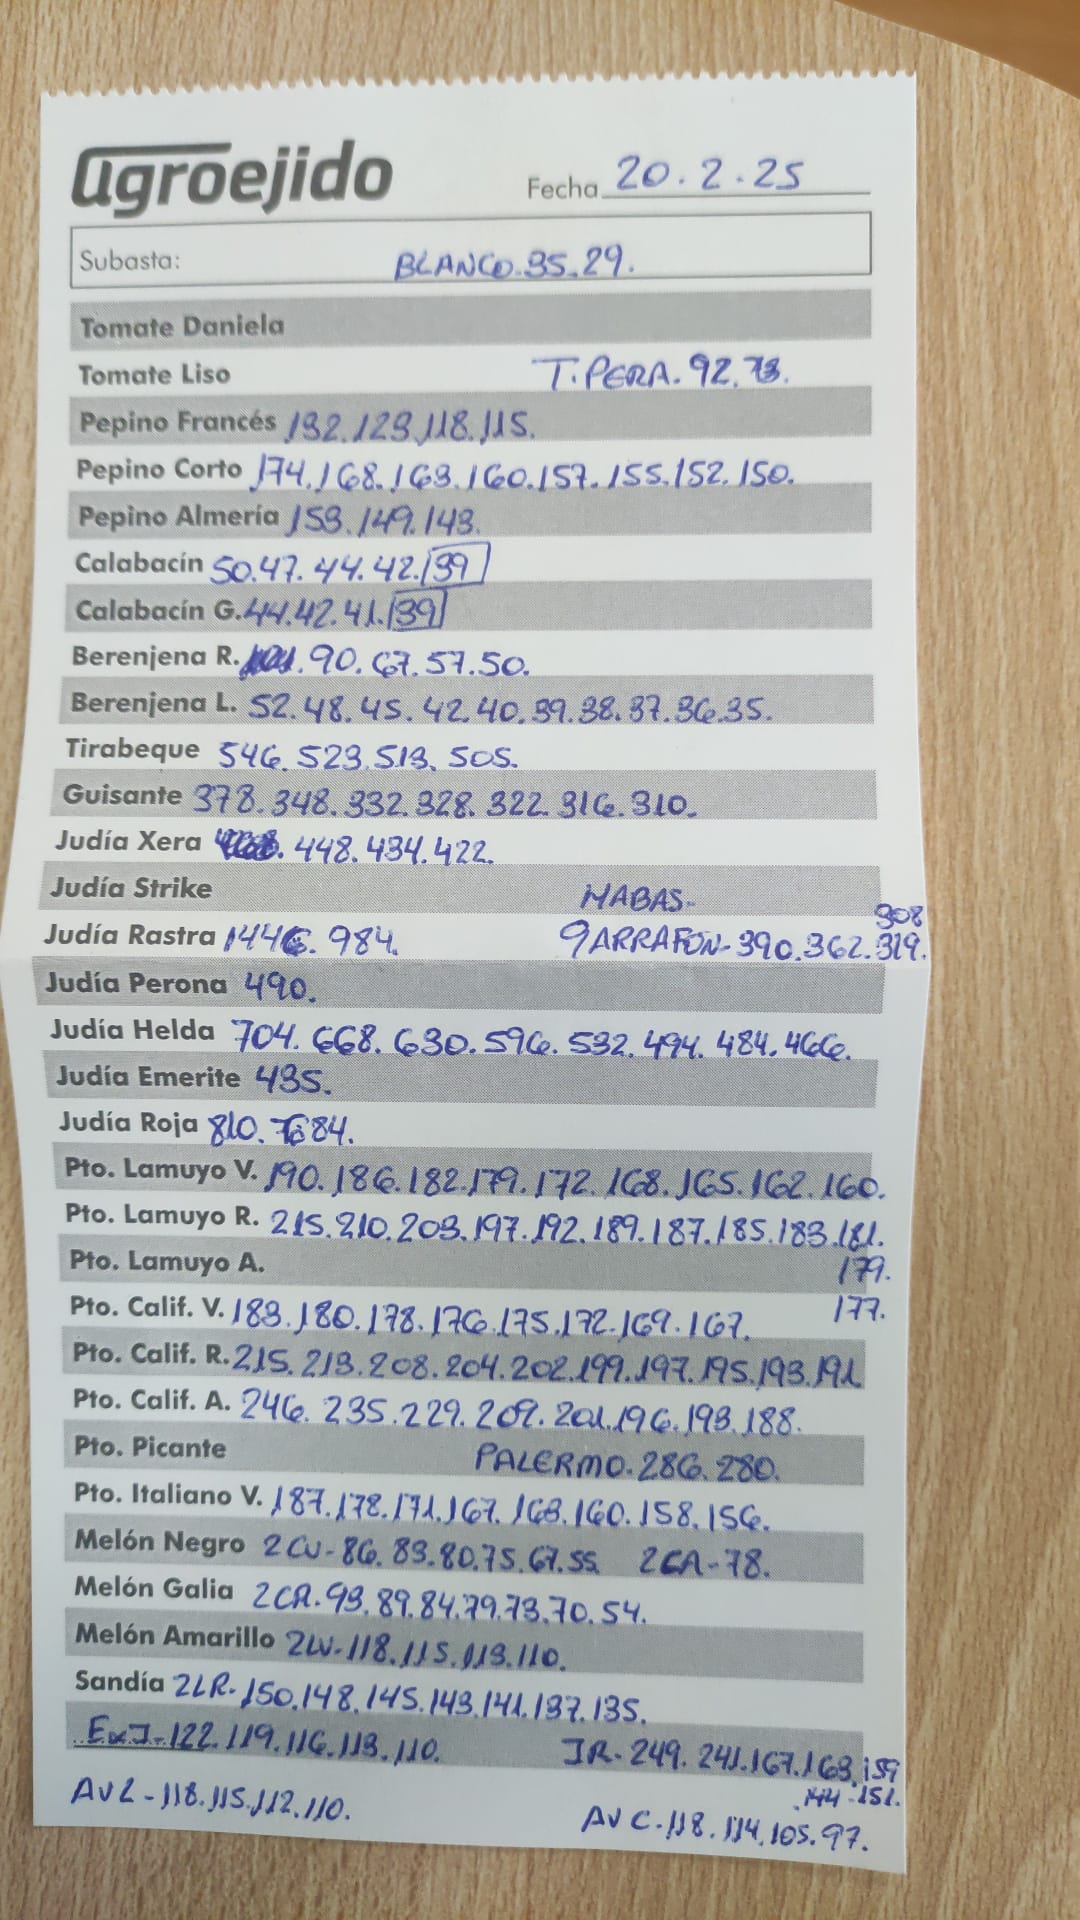 agroejido
Fecha 20.2.25
Subasta: BLANCO.35.29.
Tomate Daniela
Tomate Liso T.PERA.92.73.
Pepino Francés 132.123.118.115.
Pepino Corto 174.168.163.160.157.155.152.150.
Pepino Almería 153.149.143.
Calabacín 50.47.44.42.39
Calabacín G. 44.42.41.39
Berenjena R. .90.67.57.50.
Berenjena L. 52.48.45.42.40.39.38.37.36.35.
Tirabeque 546.523.513.505.
Guisante 378.348.332.328.322.316.310.
Judía Xera 448.434.422.
Judía Strike HABAS-
308
Judía Rastra 1446.984. GARRAFON-390.362.319.
Judía Perona 490.
Judía Helda 704.668.630.596.532.494.484.466.
Judía Emerite 435.
Judía Roja 810.684.
Pto. Lamuyo V. 190.186.182.179.172.168.165.162.160.
Pto. Lamuyo R. 215.210.203.197.192.189.187.185.183.181.
Pto. Lamuyo A. 179.
Pto. Calif. V. 183.180.178.176.175.172.169.167. 177.
Pto. Calif. R. 215.213.208.204.202.199.197.195.193.191
Pto. Calif. A. 246.235.229.209.201.196.193.188.
Pto. Picante PALERMO.286.280.
Pto. Italiano V. 187.178.171.167.163.160.158.156.
Melón Negro 2CU-86.83.80.75.67.55 2CA-78.
Melón Galia 2CR.93.89.84.79.73.70.54.
Melón Amarillo 2LV-118.115.113.110.
Sandía 2LR-150.148.145.143.141.137.135.
ExJ-122.119.116.113.110. JR-249.241.167.163.159
144-151.
AVL-118.115.112.110. AVC-118.114.105.97.